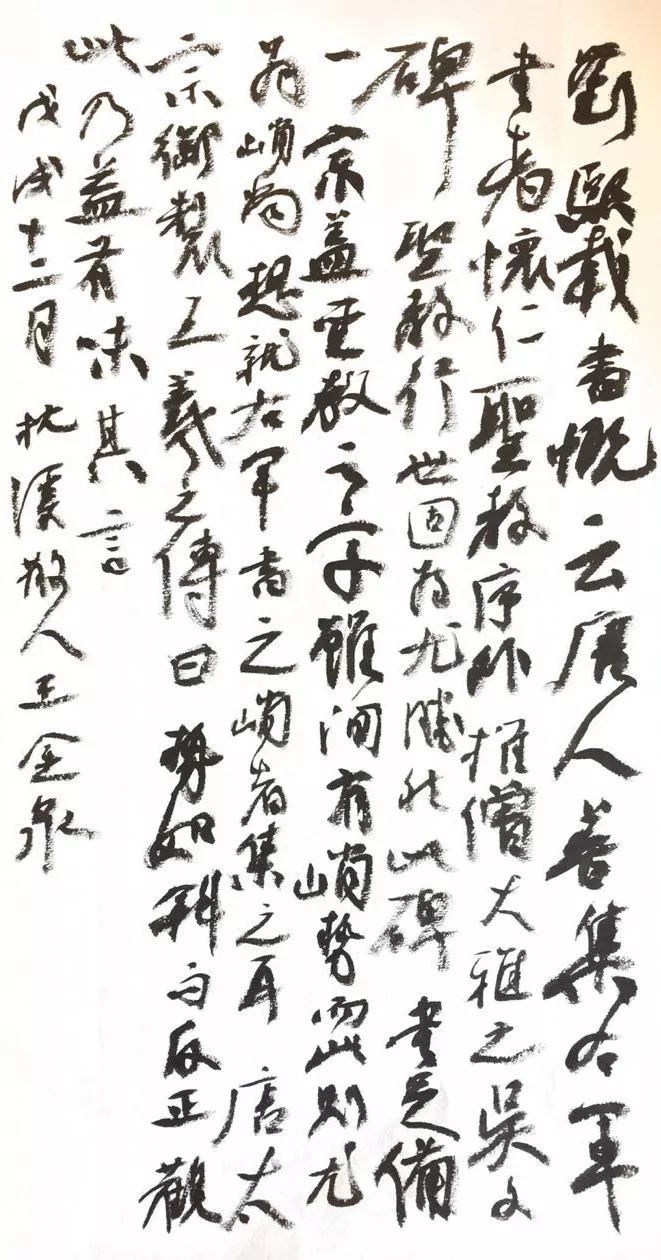 劉熙載書概云唐人善集右軍
書者懷仁聖教序外推僧大雅之吳文
碑聖教行世固為尤勝然此碑書足備
一宗蓋聖教之字雖間有峭勢而此則尤
為峭尚想就右軍書之峭者集之耳唐太
宗御製王羲之傳曰勢如斜而反正觀
此乃益有味其言
戊戌十二月枕溪散人王金泉